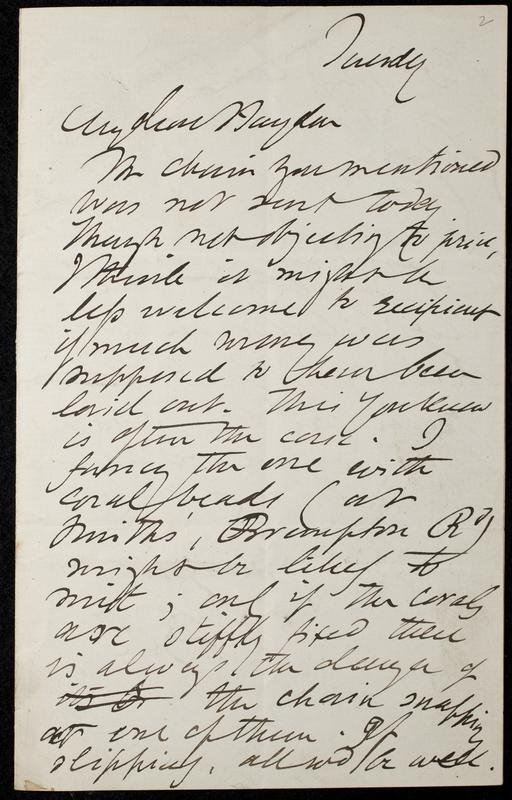 2
Tuesday
My dear Haydon
The chain you mentioned
was not sent today
though not objecting to price,
I think it might be
less welcome to recipient
if much money was
supposed to have been
laid out. This you know
is often the case. I
fancy the one with
coral beads (at
Smiths', Brompton Rd)
might be likely to
suit; only if the corals
are stiffly fixed there
is always the danger of
the chain snapping
at one of them. If
slipping, all wd be well.